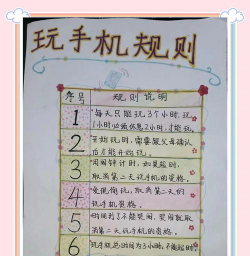 玩手机规则
序号 规则说明
1 每天只能玩3个小时,玩
1小时必须休息2小时,才能玩。
2 开始玩时,需要跟父母确认
后才能开始玩。
3 用闹钟计时,如果超时,
取消第二天玩手机的资格。
4 发现偷玩,取消第二天的
玩手机资格。
5 时间到了不能哭闹,哭闹就取
消第二天玩手机的资格。
6 玩手机总时间为3小时,不能超时